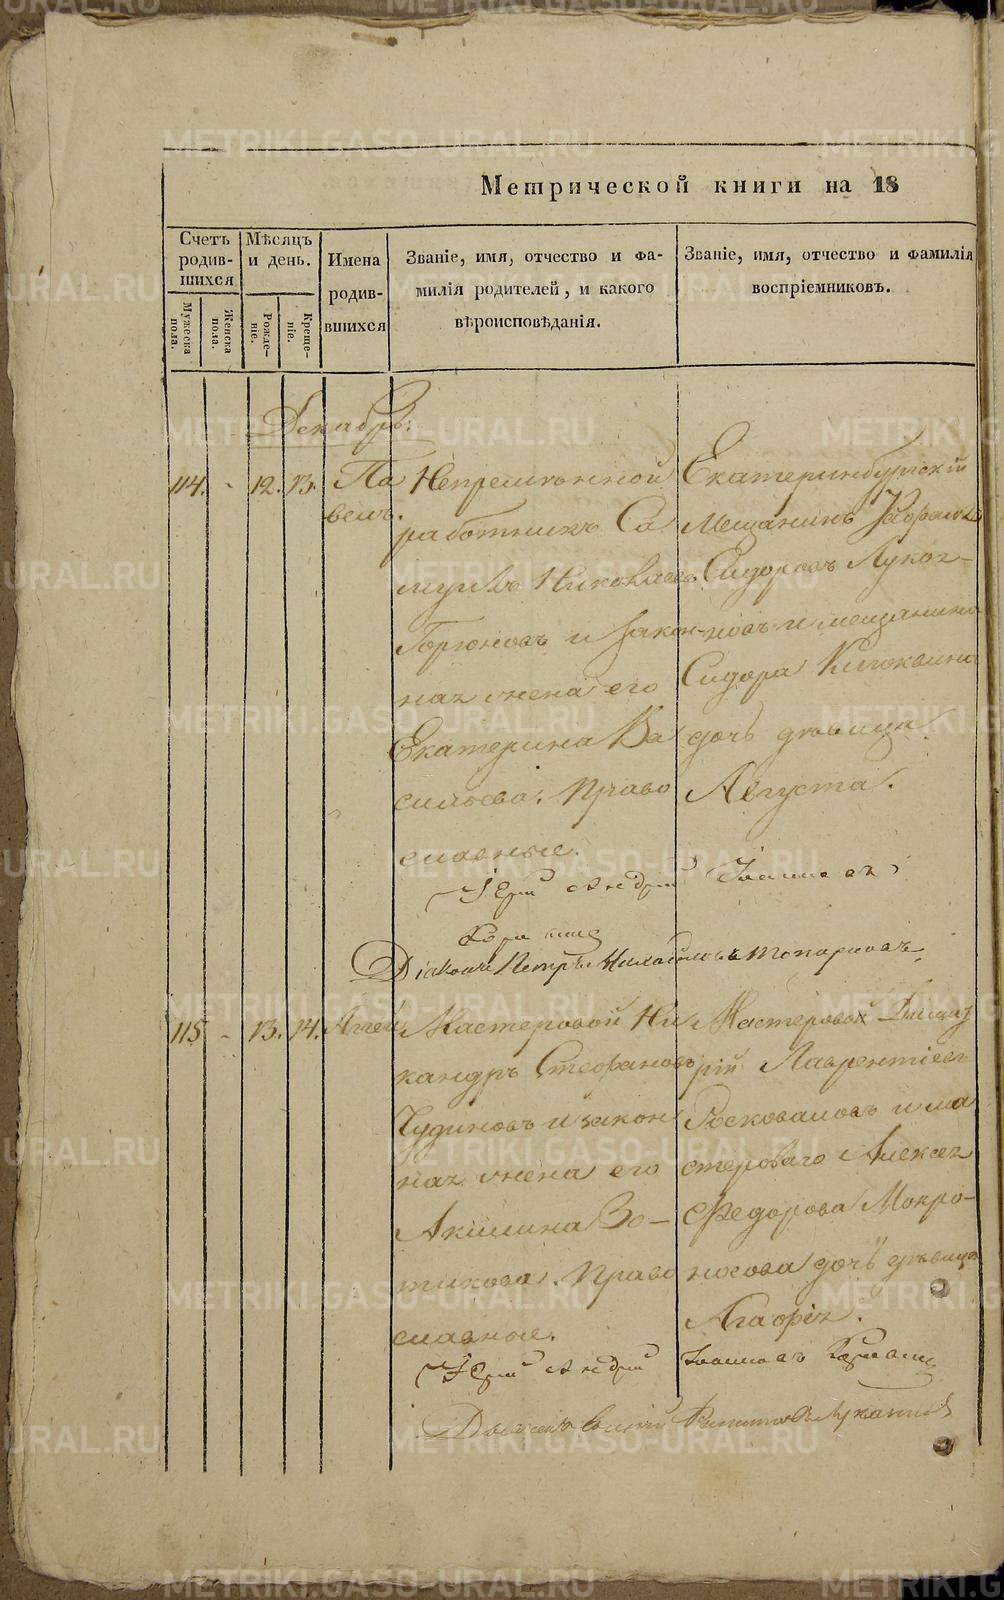 Метрической книги на 18
Счетъ родив-шихся
Мѣсяцъ и день.
Имена родив-вшихся
Званіе, имя, отчество и фа-
милія родителей, и какого
вѣроисповѣданія.
Званіе, имя, отчество и фамилія
воспріемниковъ.
Мужеска пола.
Женска пола.
Рожде-ніе.
Креще-ніе.
Декабрь.
114. - 12. 13.
Па
велъ.
Непремѣнной
работникъ Са
муилъ Николаевъ
Горюновъ и закон-
ная жена его
Екатерина Ва
сильева. Право
славные.
Екатеринбургскій
Мещанинъ
Сидоровъ
новъ и мещанина
Сидора
дочь дѣвица
Августа.
Іерей Андрей Іоанновъ
Діаконъ Петръ Топорковъ
115 - 13. 14. Аггей
Мастеровой Ни
кандръ Стефановъ
Чудиновъ и закон
ная жена его
Акилина Зо-
тикова. Право
славные.
Мастеровой
рій Лаврентіевъ
и ма
стероваго Алексѣя
Федорова Мокро-
носова дочь дѣвица
Агафія.
Іерей Андрей Іоанновъ
METRIKI.GASO-URAL.RU